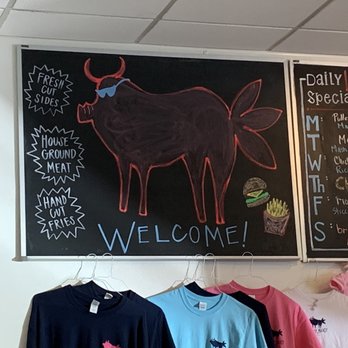 FRESH
CUT
SIDES
HOUSE
GROUND
MEAT
HAND
CUT
FRIES
WELCOME!
DAILY
Specia
M:
T
W:
Th
F
S